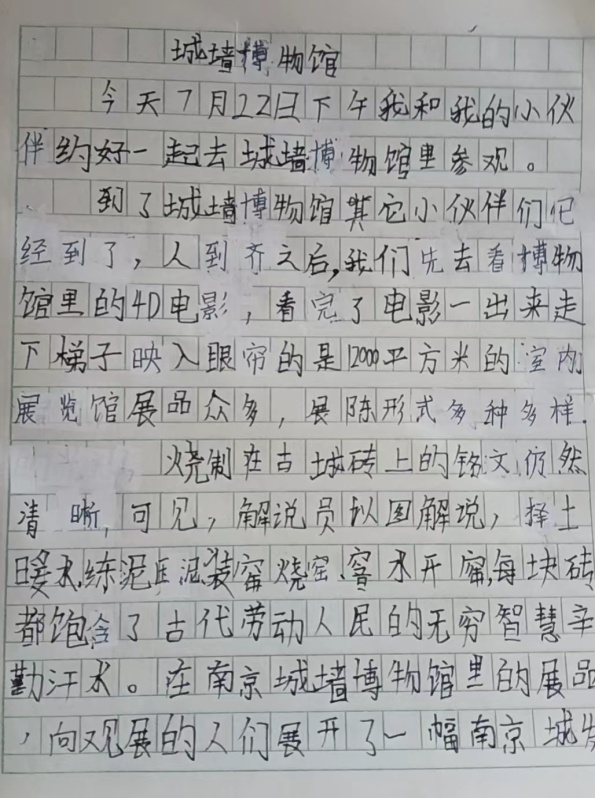 城墙博物馆
今天7月22日下午我和我的小伙
伴约好一起去城墙博物馆里参观。
到了城墙博物馆其它小伙伴们已
经到了，人到齐之后，我们先去看博物
馆里的4D电影，看完了电影一出来走
下梯子映入眼帘的是12000平方米的室内
展览馆展品众多，展陈形式多种多样.
烧制在古城砖上的铭文仍然
清晰，可见，解说员以图解说，择土
水.练泥 泥装窑烧窑、窨水开窑，每块砖
都饱含了古代劳动人民的无穷智慧辛
勤汗水。在南京城墙博物馆里的展品
，向观展的人们展开了一幅南京城